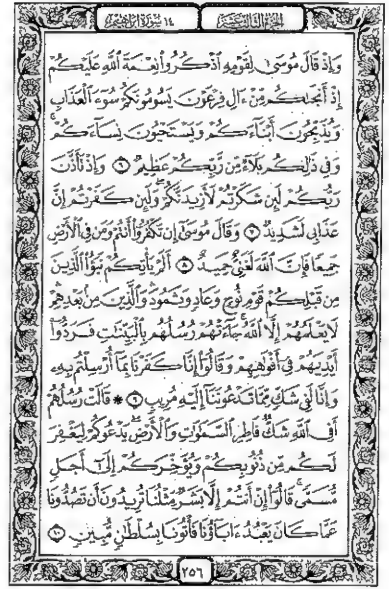 الجزء الثالث عشر ١٤ سورة إبراهيم
وَإِذْ قَالَ مُوسَىٰ لِقَوْمِهِ ٱذْكُرُوا۟ نِعْمَةَ ٱللَّهِ عَلَيْكُمْ
إِذْ أَنجَىٰكُم مِّنْ ءَالِ فِرْعَوْنَ يَسُومُونَكُمْ سُوٓءَ ٱلْعَذَابِ
وَيُذَبِّحُونَ أَبْنَآءَكُمْ وَيَسْتَحْيُونَ نِسَآءَكُمْ ۚ
وَفِى ذَٰلِكُم بَلَآءٌ مِّن رَّبِّكُمْ عَظِيمٌ ٦ وَإِذْ تَأَذَّنَ
رَبُّكُمْ لَئِن شَكَرْتُمْ لَأَزِيدَنَّكُمْ ۖ وَلَئِن كَفَرْتُمْ إِنَّ
عَذَابِى لَشَدِيدٌ ٧ وَقَالَ مُوسَىٰٓ إِن تَكْفُرُوٓا۟ أَنتُمْ وَمَن فِى ٱلْأَرْضِ
جَمِيعًا فَإِنَّ ٱللَّهَ لَغَنِىٌّ حَمِيدٌ ٨ أَلَمْ يَأْتِكُمْ نَبَؤُا۟ ٱلَّذِينَ
مِن قَبْلِكُمْ قَوْمِ نُوحٍ وَعَادٍ وَثَمُودَ ۛ وَٱلَّذِينَ مِنۢ بَعْدِهِمْ ۛ
لَا يَعْلَمُهُمْ إِلَّا ٱللَّهُ ۚ جَآءَتْهُمْ رُسُلُهُم بِٱلْبَيِّنَٰتِ فَرَدُّوٓا۟
أَيْدِيَهُمْ فِىٓ أَفْوَٰهِهِمْ وَقَالُوٓا۟ إِنَّا كَفَرْنَا بِمَآ أُرْسِلْتُم بِهِۦ
وَإِنَّا لَفِى شَكٍّ مِّمَّا تَدْعُونَنَآ إِلَيْهِ مُرِيبٍ ٩ * قَالَتْ رُسُلُهُمْ
أَفِى ٱللَّهِ شَكٌّ فَاطِرِ ٱلسَّمَٰوَٰتِ وَٱلْأَرْضِ ۖ يَدْعُوكُمْ لِيَغْفِرَ
لَكُم مِّن ذُنُوبِكُمْ وَيُؤَخِّرَكُمْ إِلَىٰٓ أَجَلٍ
مُّسَمًّى ۚ قَالُوٓا۟ إِنْ أَنتُمْ إِلَّا بَشَرٌ مِّثْلُنَا تُرِيدُونَ أَن تَصُدُّونَا
عَمَّا كَانَ يَعْبُدُ ءَابَآؤُنَا فَأْتُونَا بِسُلْطَٰنٍ مُّبِينٍ ١٠
٢٥٦